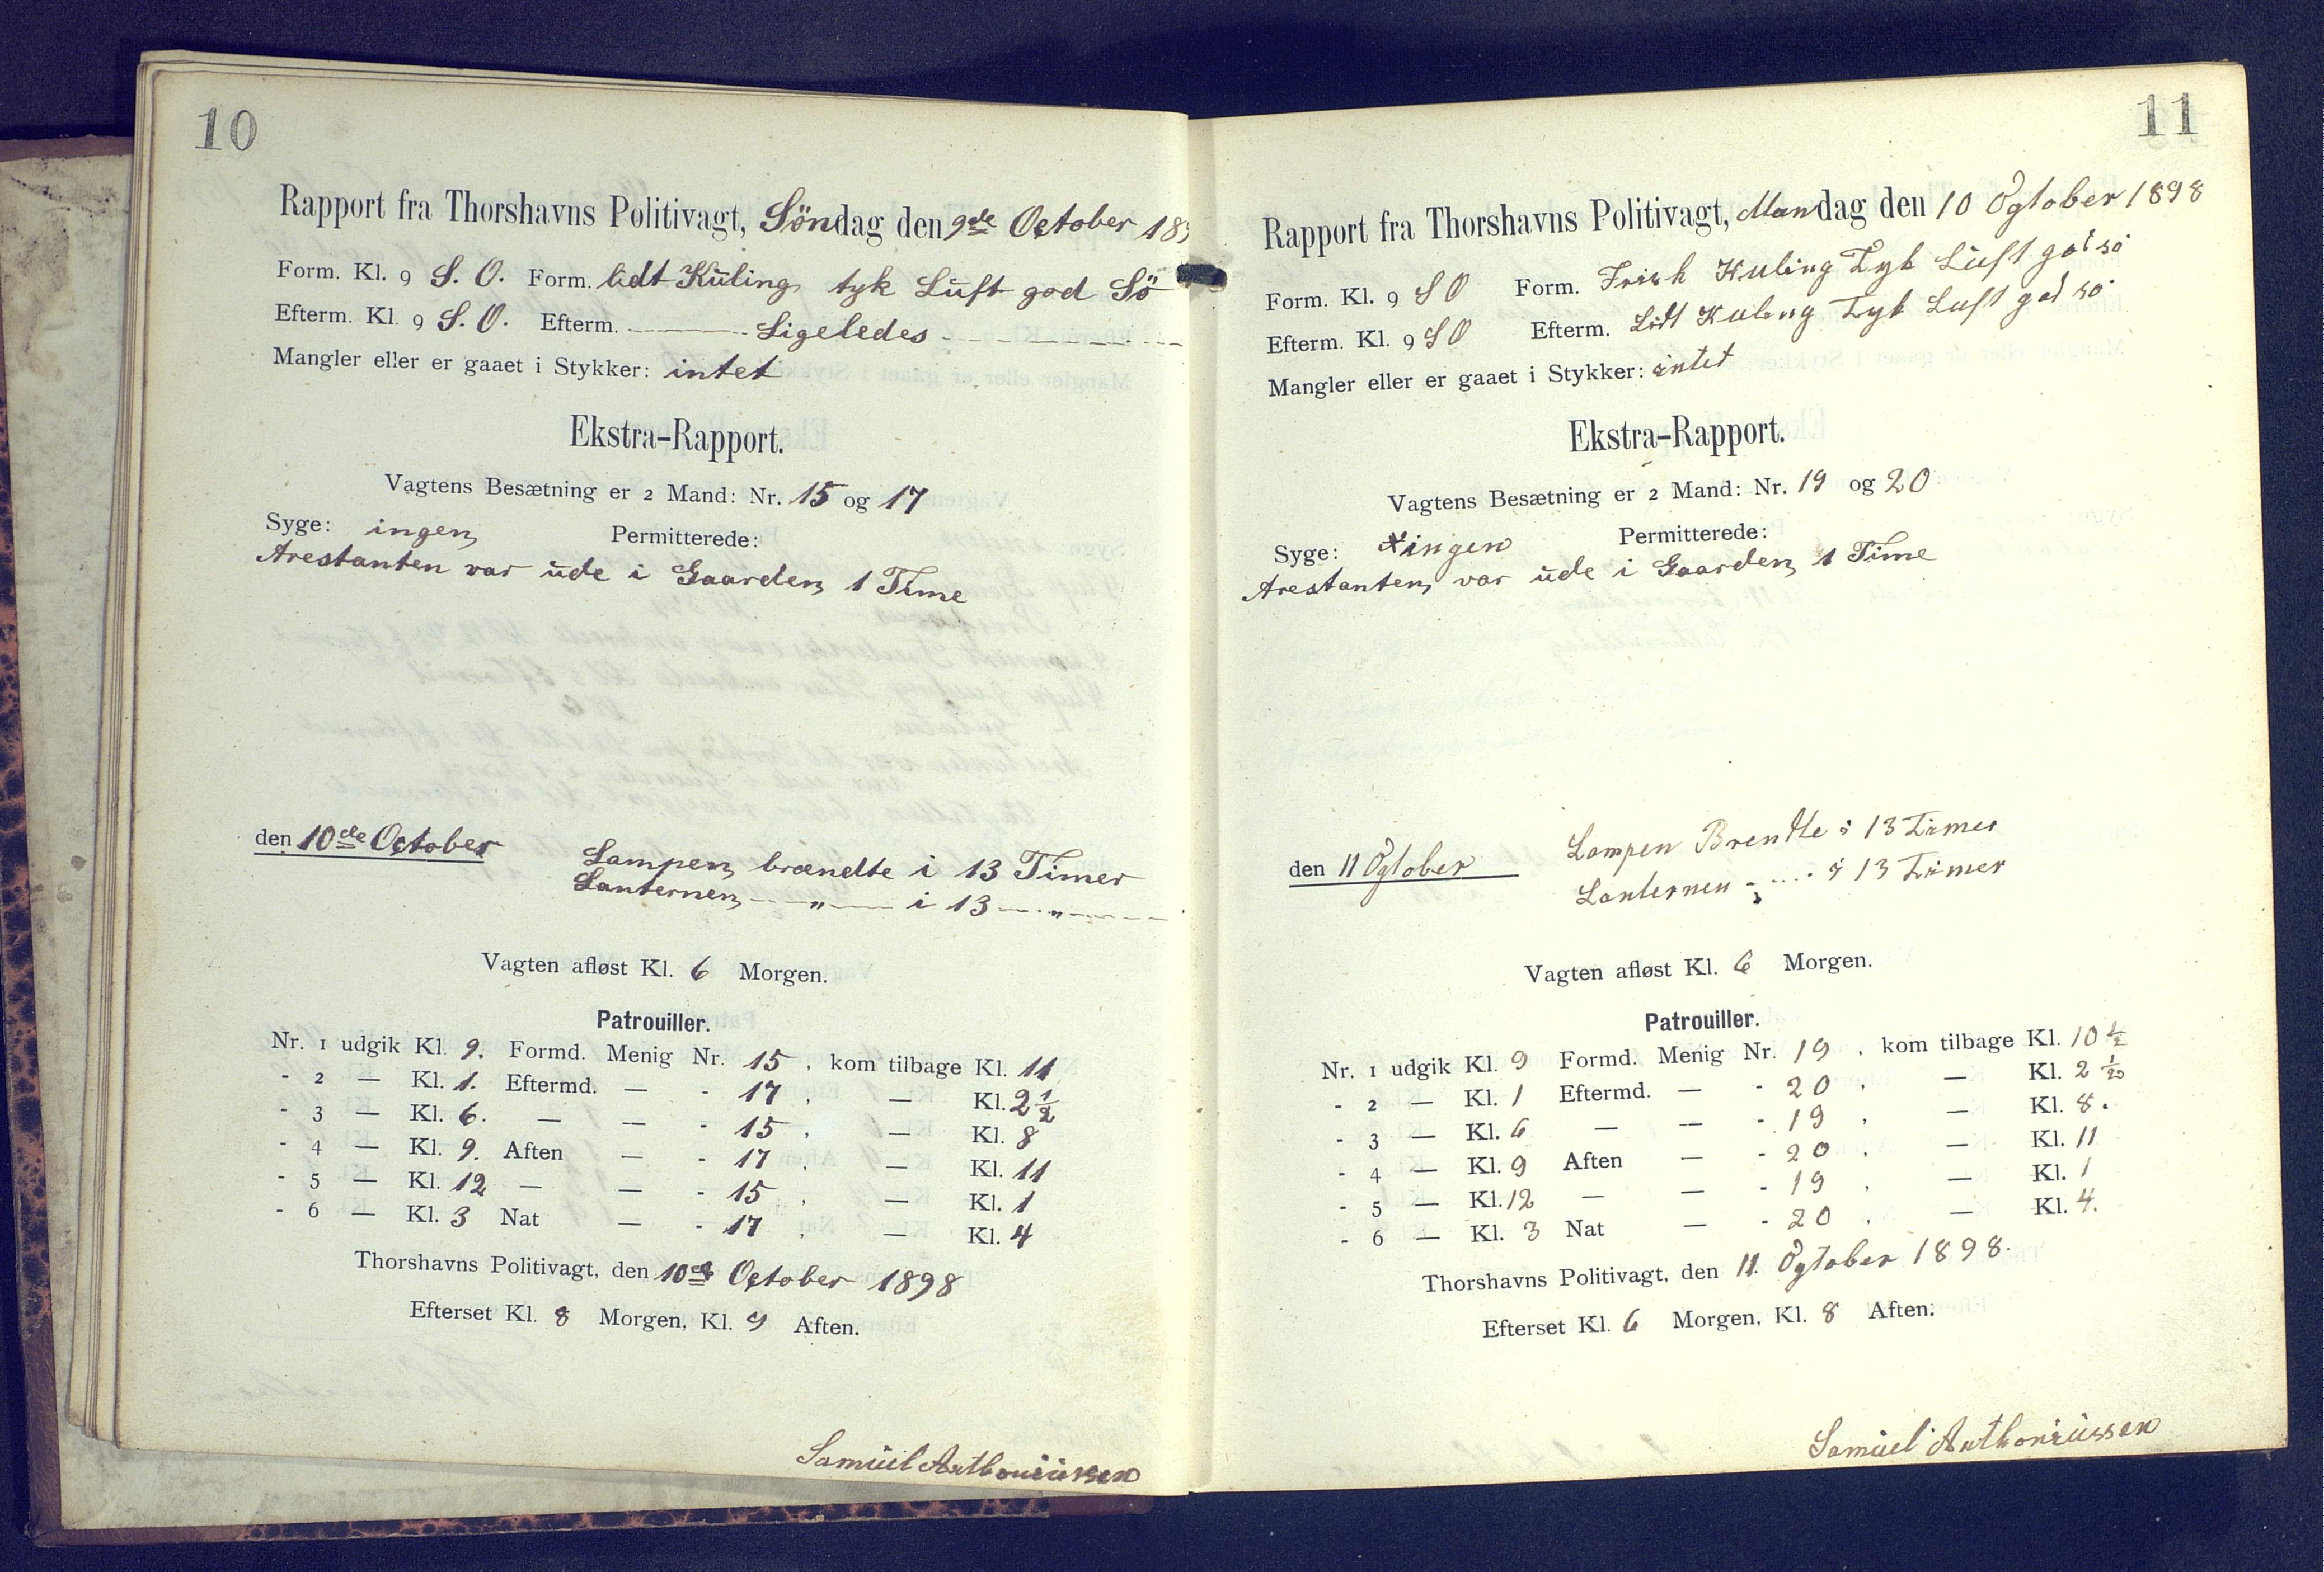 10
Rapport fra Thorshavns Politivagt, Söndag den 9de October 189
Form. Kl. 9 S. O. Form. lidt Kuling tyk Luft god Sö
Efterm. Kl. 9 S. O. Efterm. — Ligeledes —
Mangler eller er gaaet i Stykker: intet
Ekstra-Rapport.
Vagtens Besætning er 2 Mand: Nr. 15 og 17
Syge: ingen Permitterede:
Arestanten var ude i Gaarden 1 Time
den 10de October
Lampen brændte i 13 Timer
Lanternen — „ — i 13 — „ —
Vagten afløst Kl. 6 Morgen.
Patrouiller.
Nr. 1 udgik Kl. 9. Formd. Menig Nr. 15, kom tilbage Kl. 11
- 2 — Kl. 1. Eftermd. — - 17, — Kl. 2 1/2
- 3 — Kl. 6. — — - 15, — Kl. 8
- 4 — Kl. 9. Aften — - 17, — Kl. 11
- 5 — Kl. 12 — — - 15, — Kl. 1
- 6 — Kl. 3 Nat — - 17, — Kl. 4
Thorshavns Politivagt, den 10de October 1898
Efterset Kl. 8 Morgen, Kl. 9 Aften.
Samuel Anthoniussen
11
Rapport fra Thorshavns Politivagt, Mandag den 10 Ogtober 1898
Form. Kl. 9 S O Form. Frisk Kuling Tyk Luft god sö
Efterm. Kl. 9 S O Efterm. Lidt Kuling Tyk Luft god sö
Mangler eller er gaaet i Stykker: intet
Ekstra-Rapport.
Vagtens Besætning er 2 Mand: Nr. 19 og 20
Syge: ingen Permitterede:
Arestanten var ude i Gaarden 1 Time
den 11 Ogtober
Lampen Brendte i 13 Timer
Lanternen - „ - i 13 Timer
Vagten afløst Kl. 6 Morgen.
Patrouiller.
Nr. 1 udgik Kl. 9 Formd. Menig Nr. 19, kom tilbage Kl. 10 1/2
- 2 — Kl. 1 Eftermd. — - 20, — Kl. 2 1/20
- 3 — Kl. 6 — — - 19, — Kl. 8.
- 4 — Kl. 9 Aften — - 20, — Kl. 11
- 5 — Kl. 12 — — - 19, — Kl. 1
- 6 — Kl. 3 Nat — - 20, — Kl. 4.
Thorshavns Politivagt, den 11. Ogtober 1898.
Efterset Kl. 6 Morgen, Kl. 8 Aften.
Samuel Anthoniussen